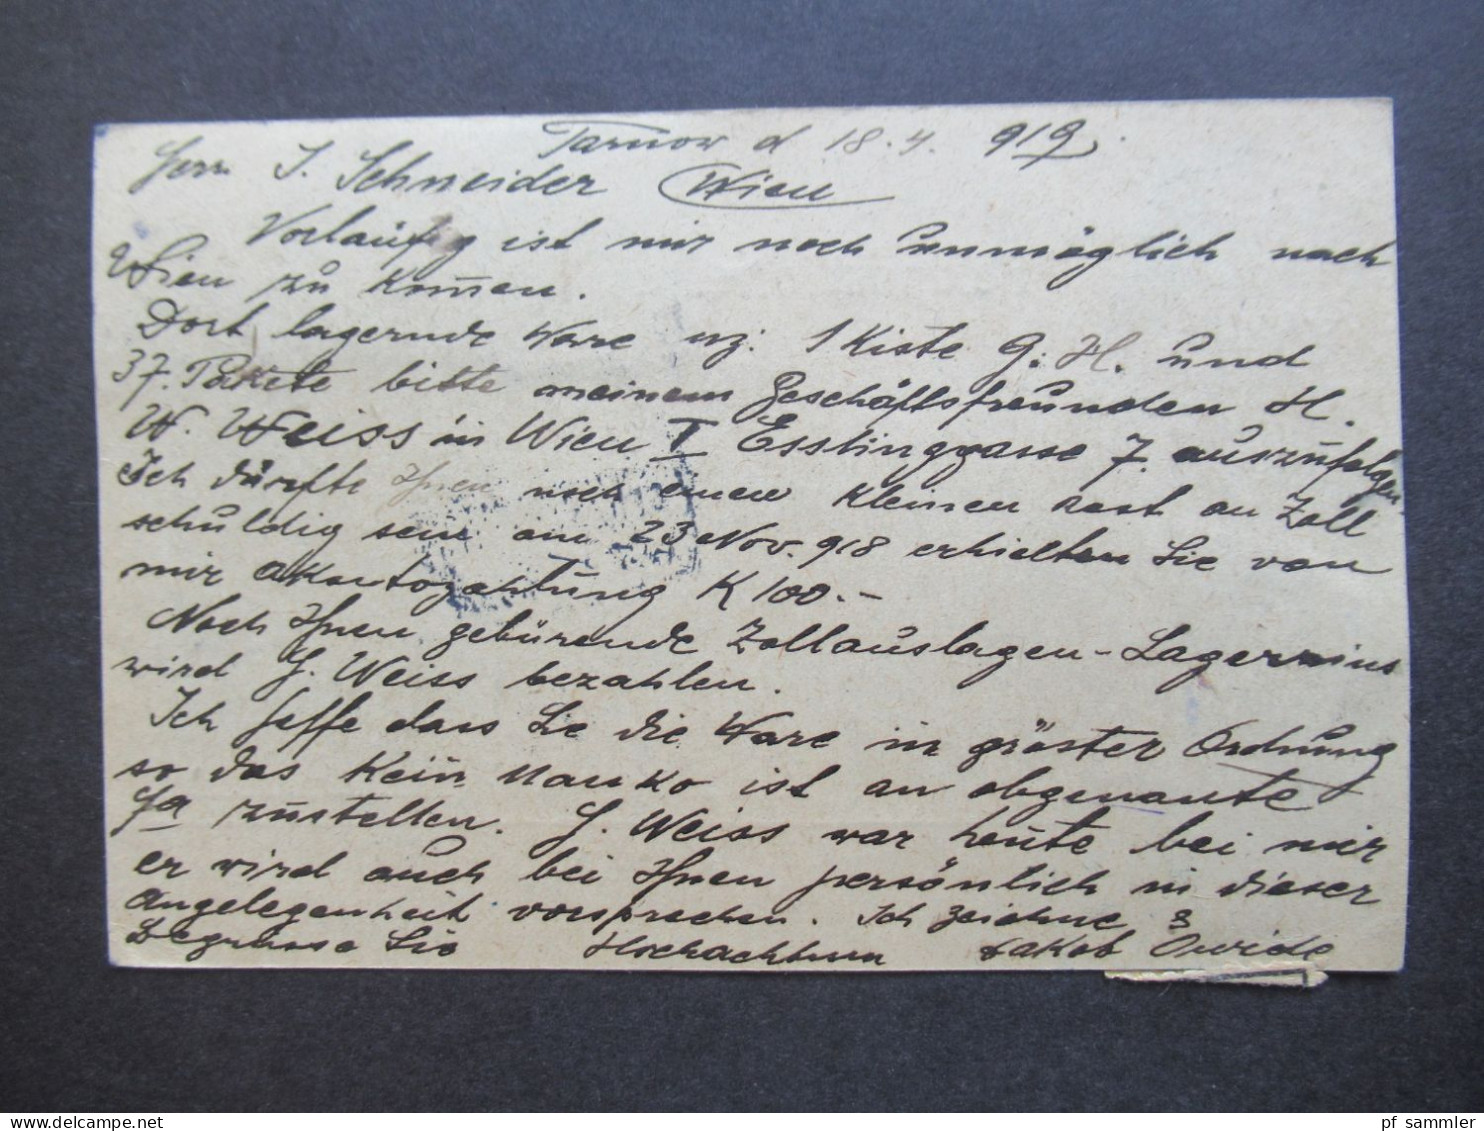 Tarnow d 18.4. 919.
Herr J. Schneider Wien
Vorläufig ist mir noch unmöglich nach
Wien zu kom̄en.
Dort lagernde Ware uz. 1 Kiste G. H. und
37. Pakete bitte meinem Geschäftsfreunden H.
W. Weiss in Wien I Esslinggasse 7. auszufolgen
Ich dürfte Ihnen noch einen kleinen Rest an Zoll
schuldig sein am 23 Nov. 918 erhielten Sie von
mir akontozahlung K 100.-
Noch Ihnen gebürende Zollauslagen-Lagerzins
wird H. Weiss bezahlen.
Ich hoffe dass Sie die Ware in gröster Ordnung
so das kein manko ist an obgenante
Fa zustellen. H. Weiss war heute bei mir
er wird auch bei Ihnen persönlich in dieser
Angelegenheit vorsprechen. Ich zeichne
Begrüsse Sie Hochachtum Jakob
pf sammler
www.delcampe.net